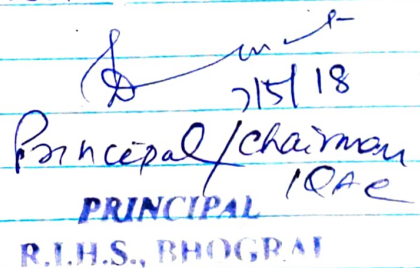 7/5/18
Principal/Chairman
IQAC
PRINCIPAL
R.I.H.S., BHOGRAI